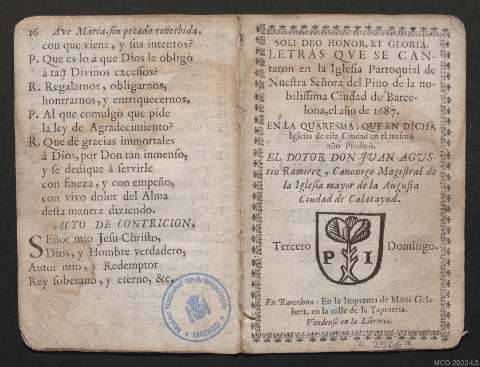 16 Ave Maria sin pecado concebida.
con que viene, y sus intentos?
P. Que es lo a que Dios le obligò
à tan Divinos excesos?
R. Regalarnos, obligarnos,
honrrarnos, y enrriquecernos.
P. Al que comulgò que pide
la ley de Agradecimiento?
R. Que dè gracias immortales
à Dios, por Don tan inmenso,
y se dedique à servirle
con fineza, y con empeño,
con vivo dolor del Alma
desta manera diziendo.
ACTO DE CONTRICION.
Señor mio Jesu-Christo,
Dios, y Hombre verdadero,
Autor mio, y Redemptor
Rey soberano, y eterno, &c.
Museo Nacional de Antropología
MADRID
SOLI DEO HONOR, ET GLORIA.
LETRAS QVE SE CAN-
taron en la Iglesia Parroquial de
Nuestra Señora del Pino de la no-
bilissima Ciudad de Barce-
lona, el año de 1687.
EN LA QUARESMA, QUE EN DICHA
Iglesia de esta Ciudad en el mismo
año Predicò.
EL DOTOR DON JUAN AGUS-
tin Ramirez, Canonigo Magistral de
la Iglesia mayor de la Augusta
Ciudad de Calatayud.
Tercero Domingo.
P I
En Barcelona: En la Imprenta de Mirti Gela-
bert, en la calle de la Tapineria.
Vendense en la Libreria.
MCD 2022-L5